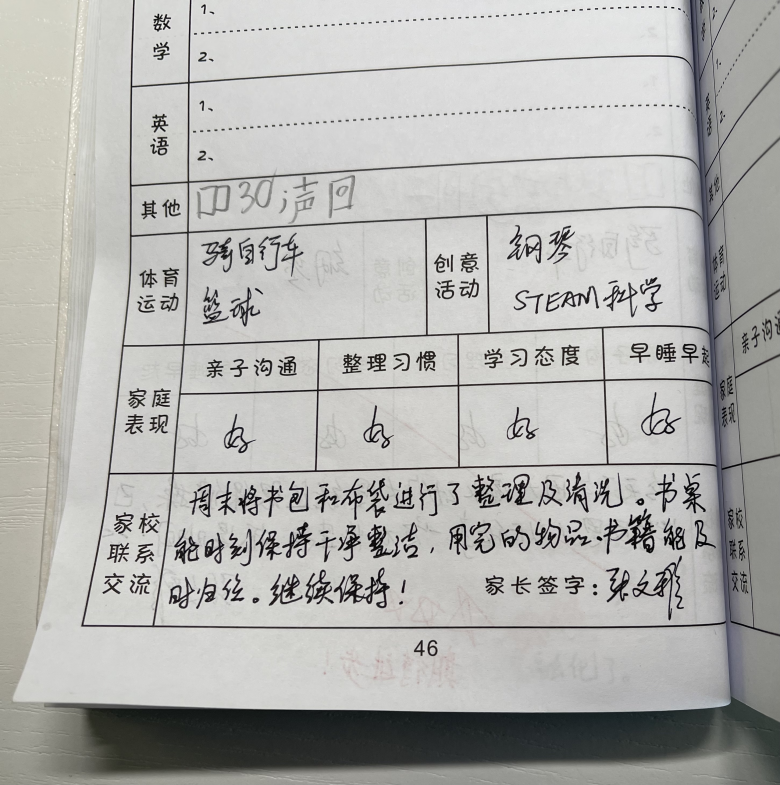 数学
1、
2、
英语
1、
2、
其他
体育运动
骑自行车
篮球
创意活动
钢琴
STEAM科学
家庭表现
亲子沟通 整理习惯 学习态度 早睡早起
好 好 好 好
家校联系交流
周末将书包和布袋进行了整理及清洗。书桌
能时刻保持干净整洁，用完的物品、书籍能及
时归位。继续保持！ 家长签字：张文
46
体育运动
亲子沟通
家庭表现
家校联系交流